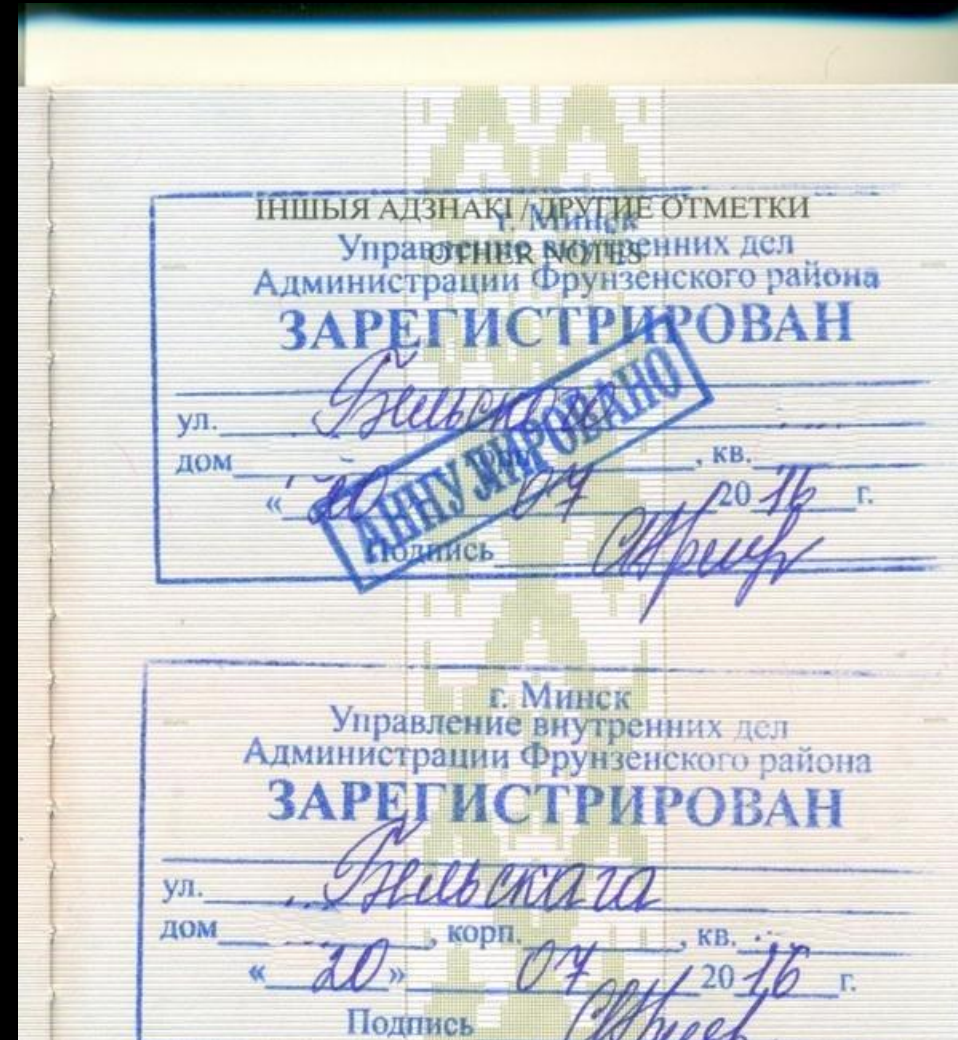 ІНШЫЯ АДЗНАКІ / ДРУГИЕ ОТМЕТКИ
OTHER NOTES
г. Минск
Управление внутренних дел
Администрации Фрунзенского района
ЗАРЕГИСТРИРОВАН
ул. Бельского
АННУЛИРОВАНО
дом , корп. , кв.
« 20 » 07 20 16 г.
Подпись
г. Минск
Управление внутренних дел
Администрации Фрунзенского района
ЗАРЕГИСТРИРОВАН
ул. Бельскага
дом , корп. , кв.
« 20 » 07 20 16 г.
Подпись